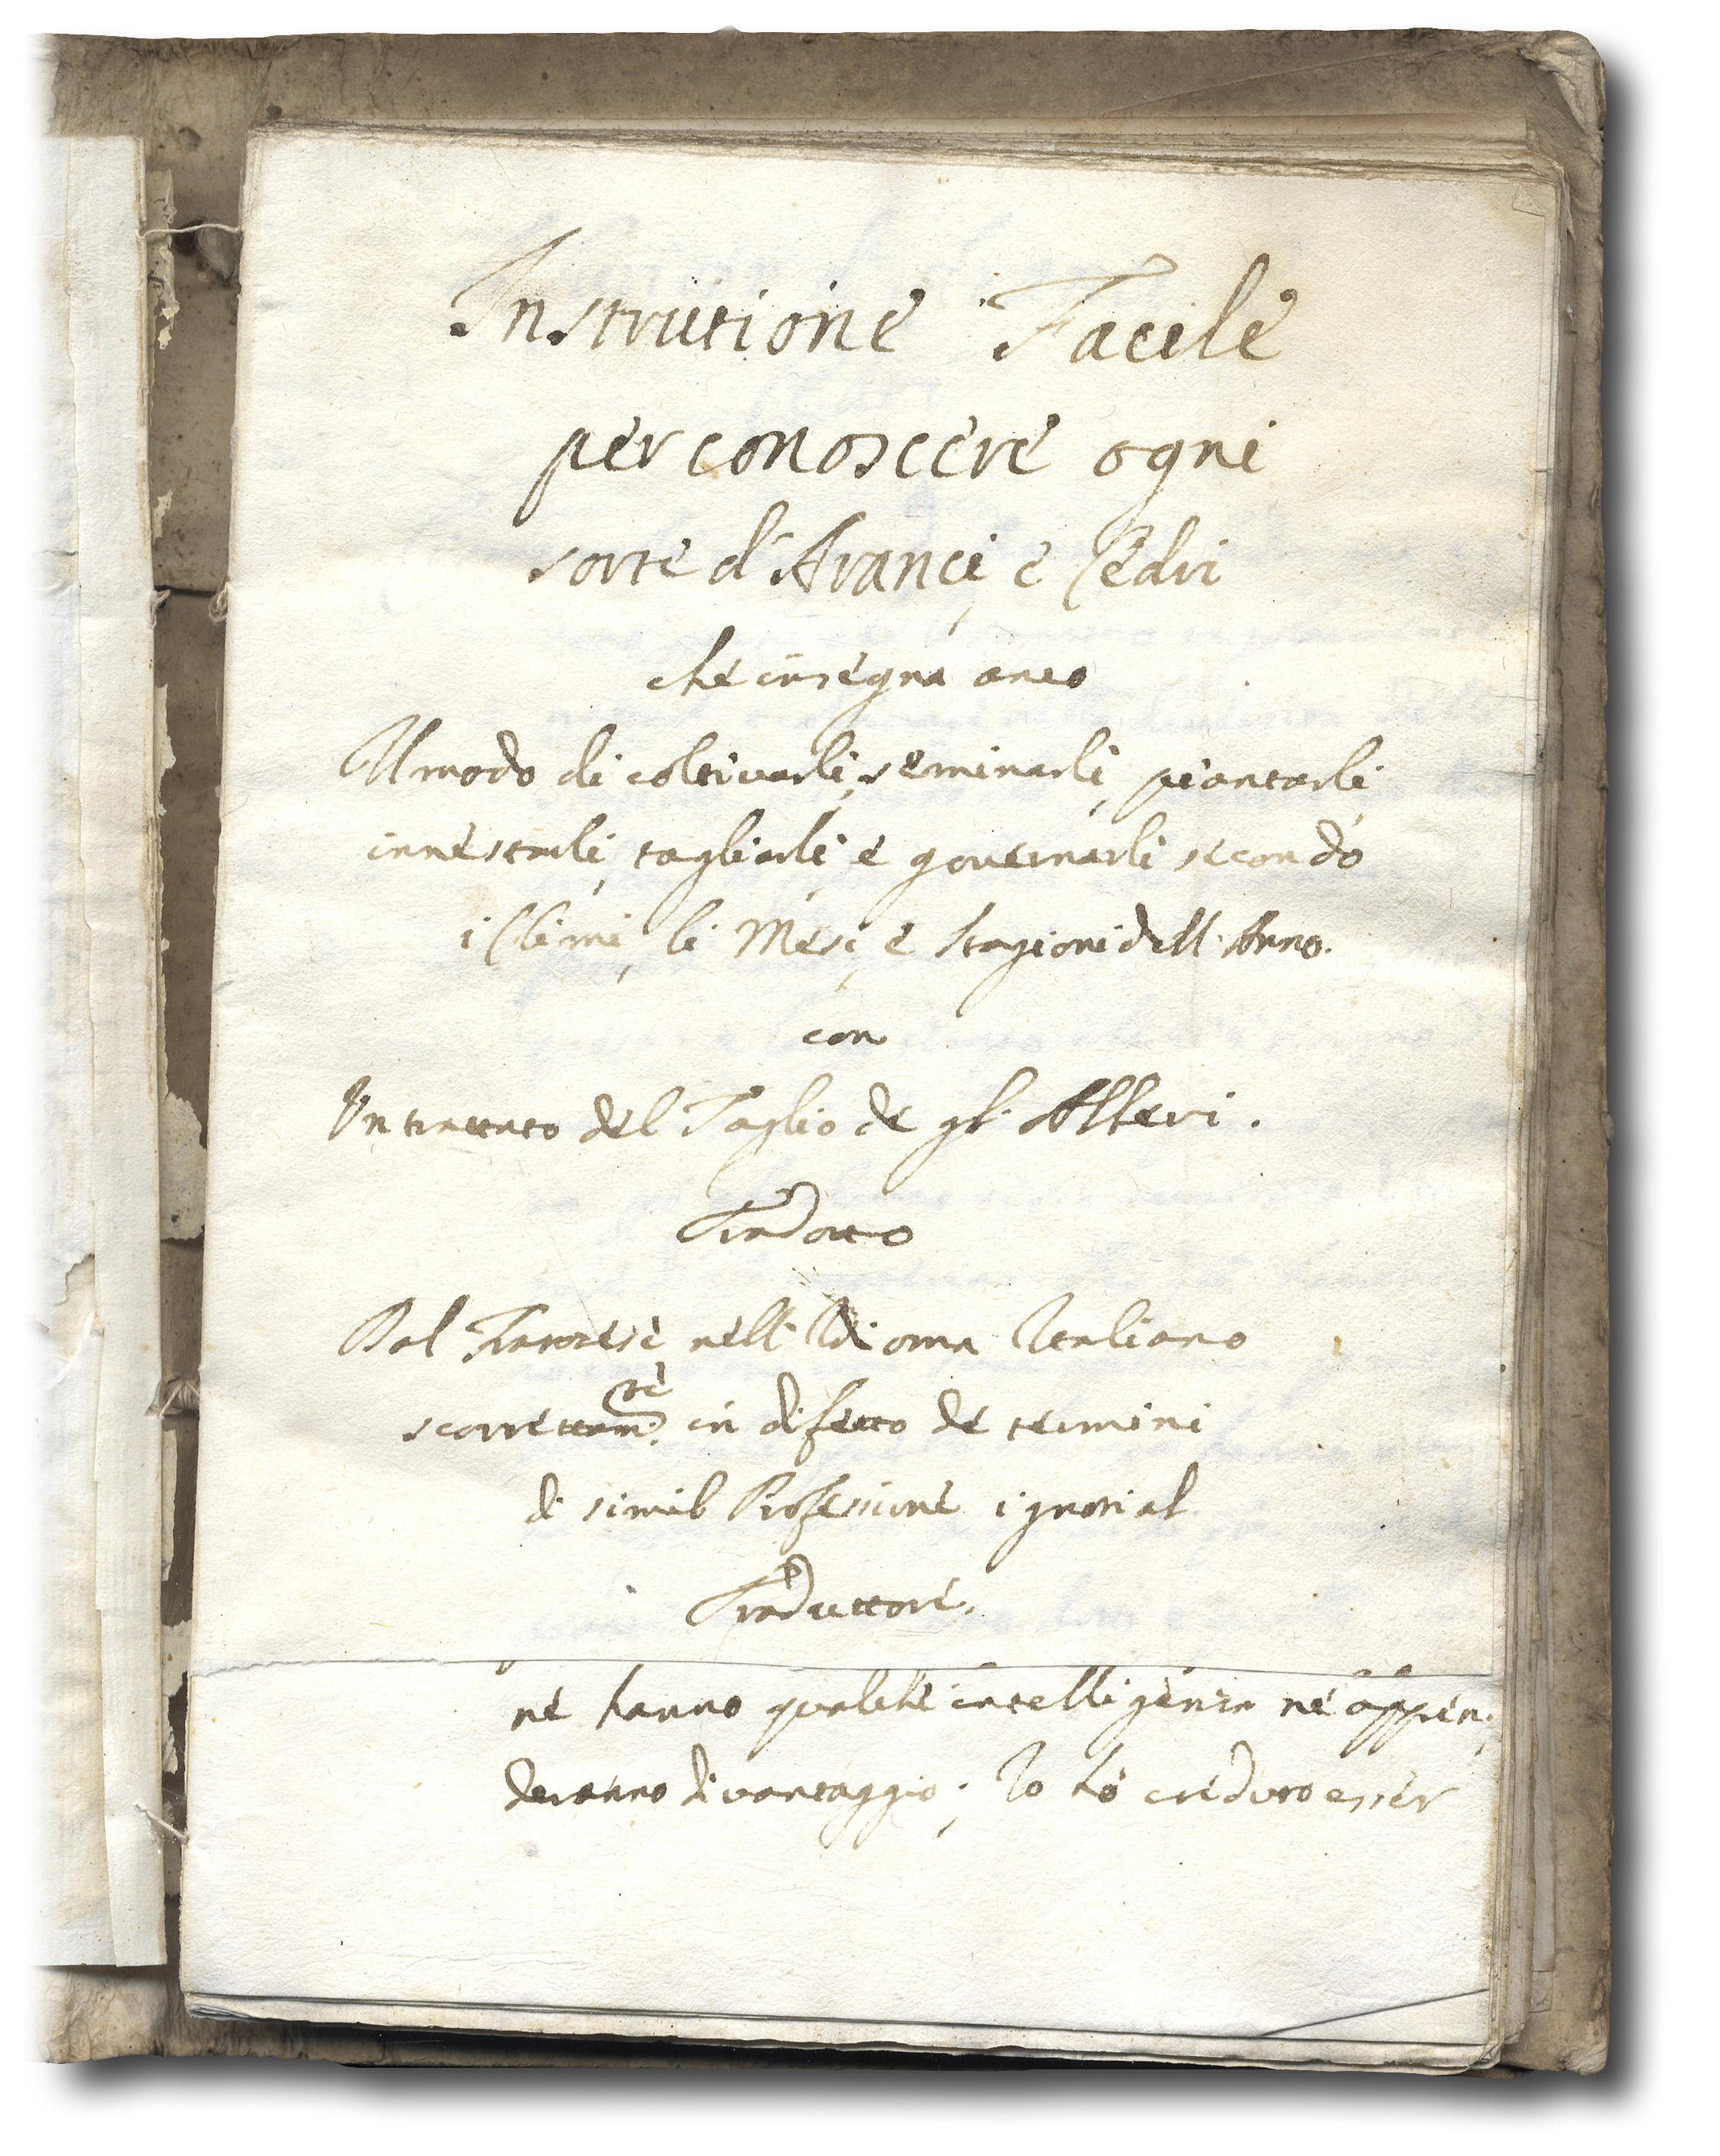 Instrutione Facile
per conoscere ogni
sorte d'Aranci, e Cedri
che insegna anco
Il modo di coltivarli, seminarli, piantarli,
innestarli, tagliarli, e governarli secondo
i Climi, li Mesi, e Stagioni dell'Anno.
con
Un trattato del Taglio de gl' Alberi.
Tradotto
Dal Francese nell'Idioma Italiano
scorrettam.te in difetto de termini
di simil Professione ignoti al
Traduttore.
ne hanno qualche intelligenza ne appren,
deranno di vantaggio; Io hò creduto esser